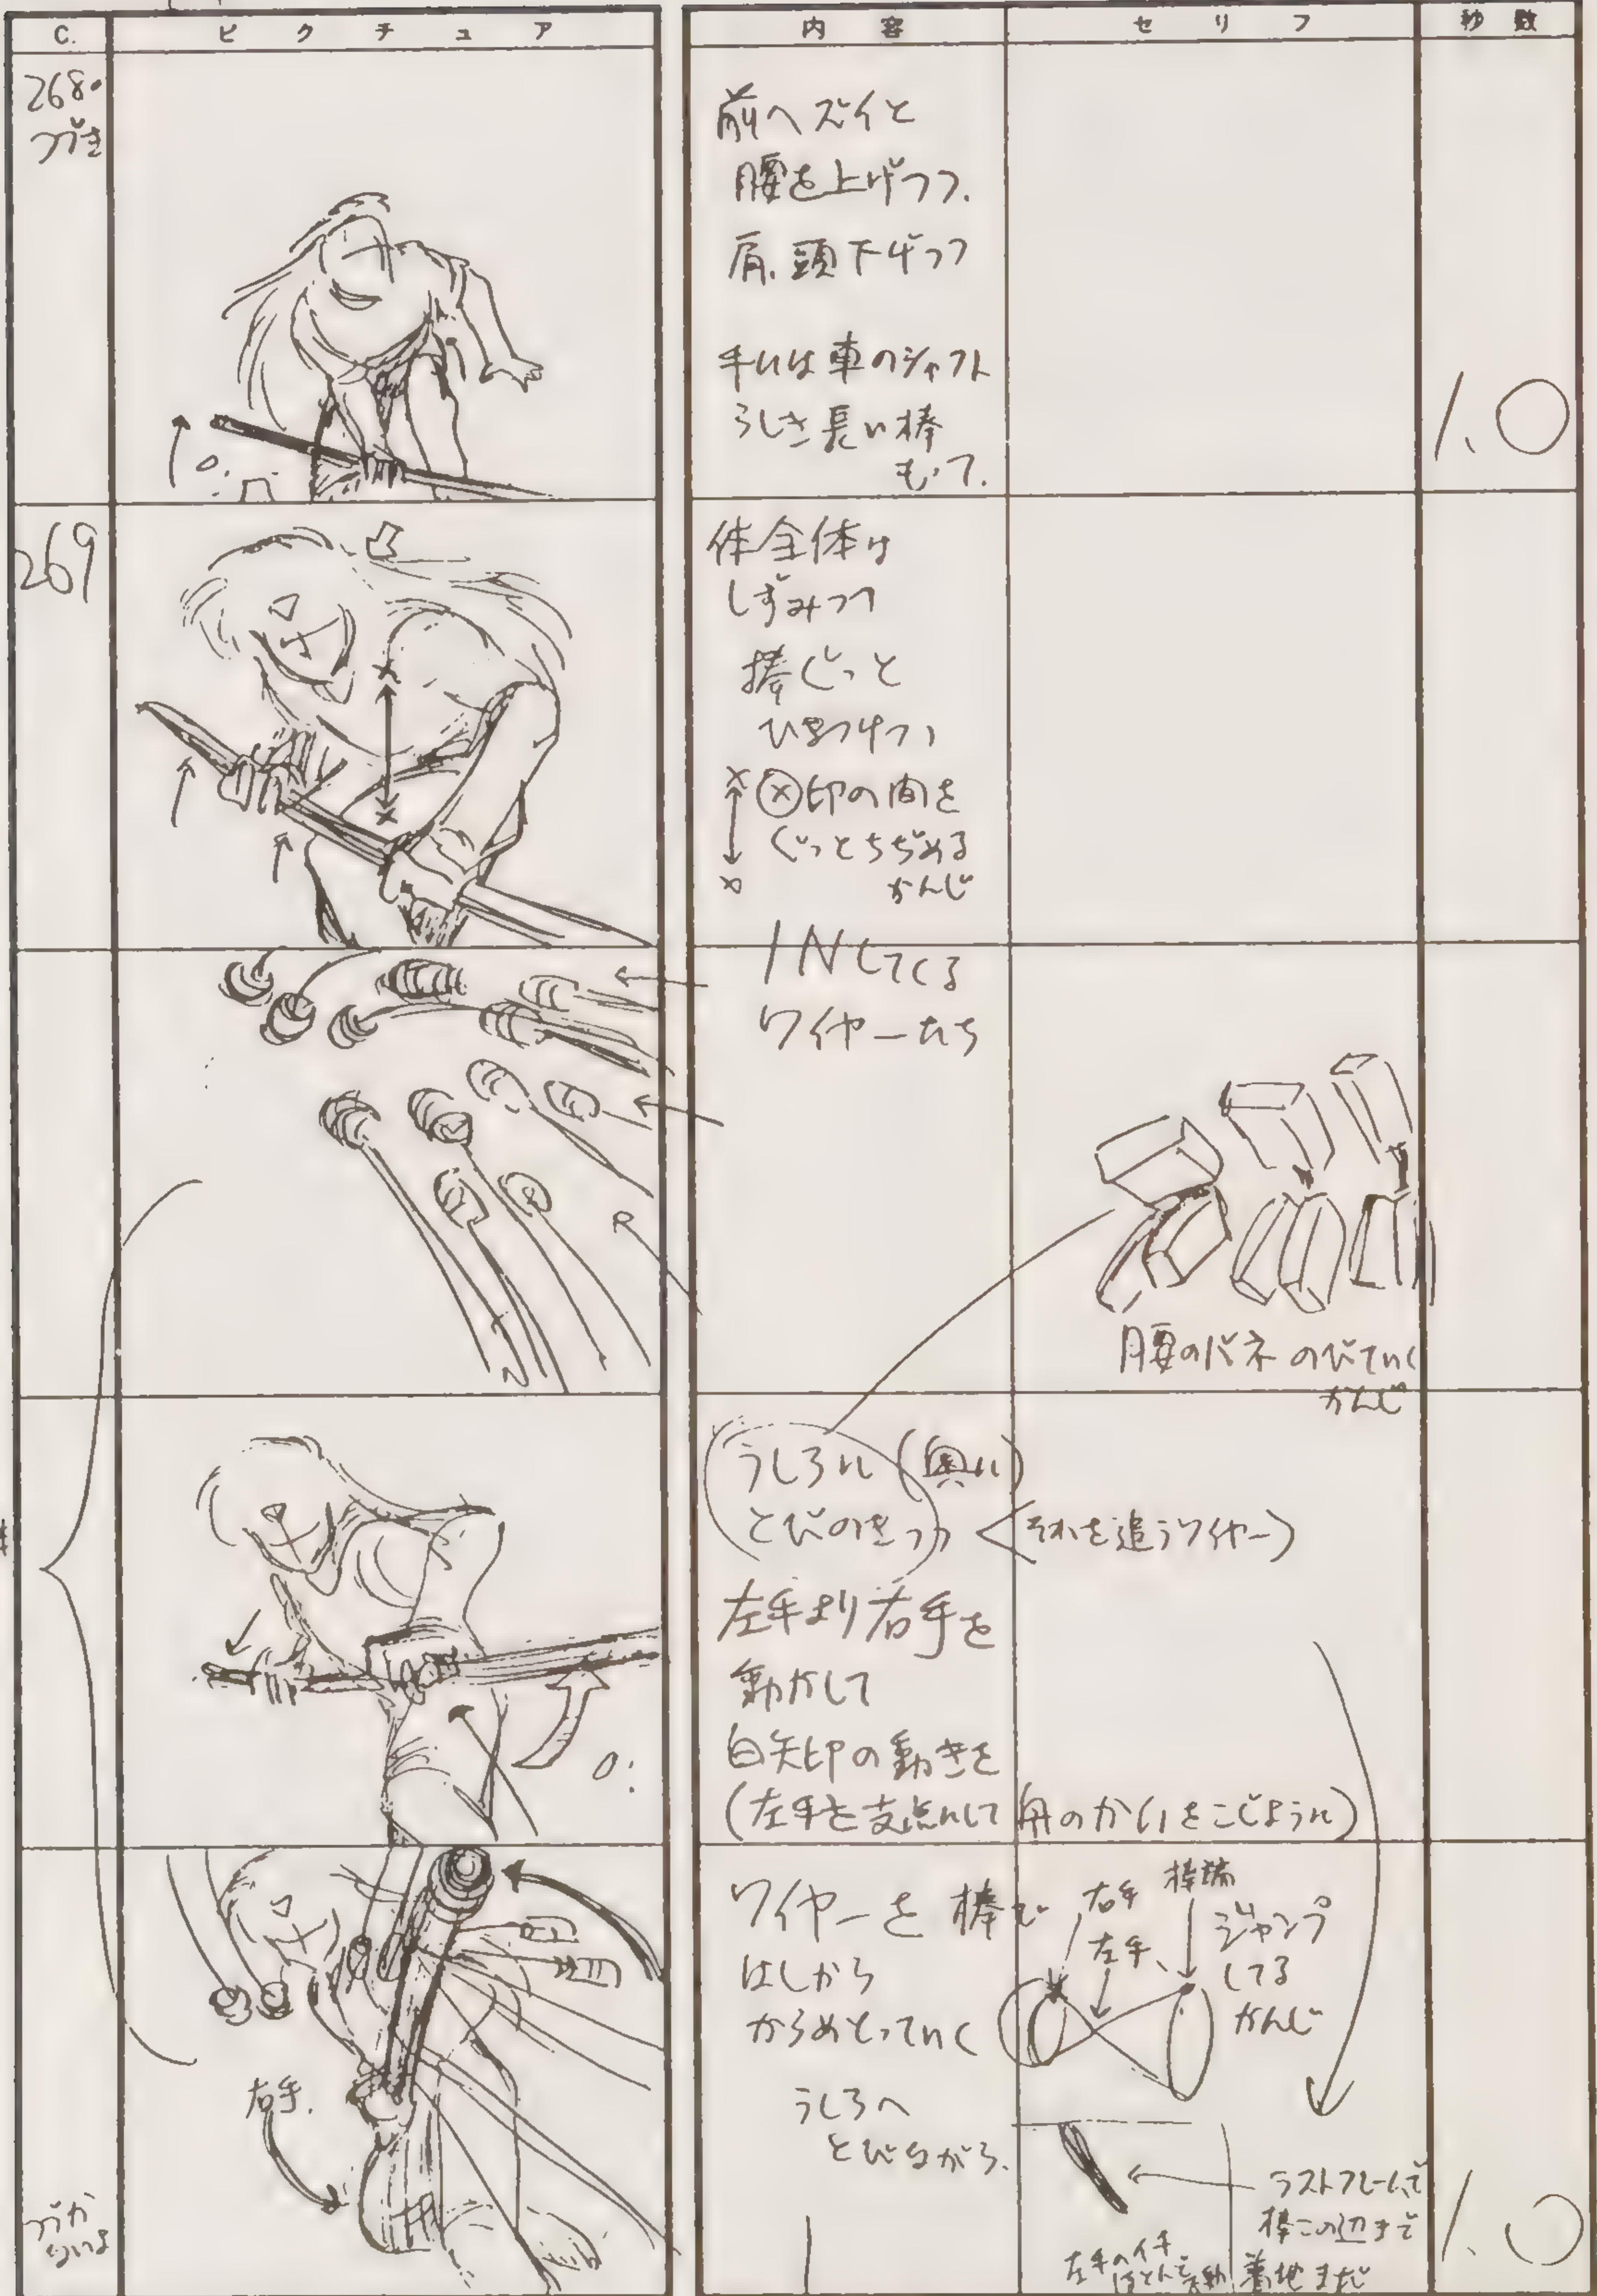 C.
ピクチュア
内容
セリフ
秒数
268
つづき
前へズイと
腰を上げつつ.
肩、頭下げつつ
手には車のシャフト
らしき長い棒
もって.
1.0
269
体全体は
しずみつつ
棒ぐっと
ひきつけつつ
×印の間を
ぐっとちぢめる
かんじ
INしてくる
ワイヤーたち
腰のバネのびていく
かんじ
うしろに(奥に)
とびのきつつ
<それを追うワイヤー>
左手より右手を
動かして
白矢印の動きを
(左手を支点にして舟のかいをこぐように)
ワイヤーを棒で
はしから
からめとっていく
うしろへ
とびながら.
右手
左手、
棒端
ジャンプ
してる
かんじ
右手.
ラストフレームで
棒この辺まで
着地まだ
左手のイチ
ほとんど不動
つづか
ないよ
1.0